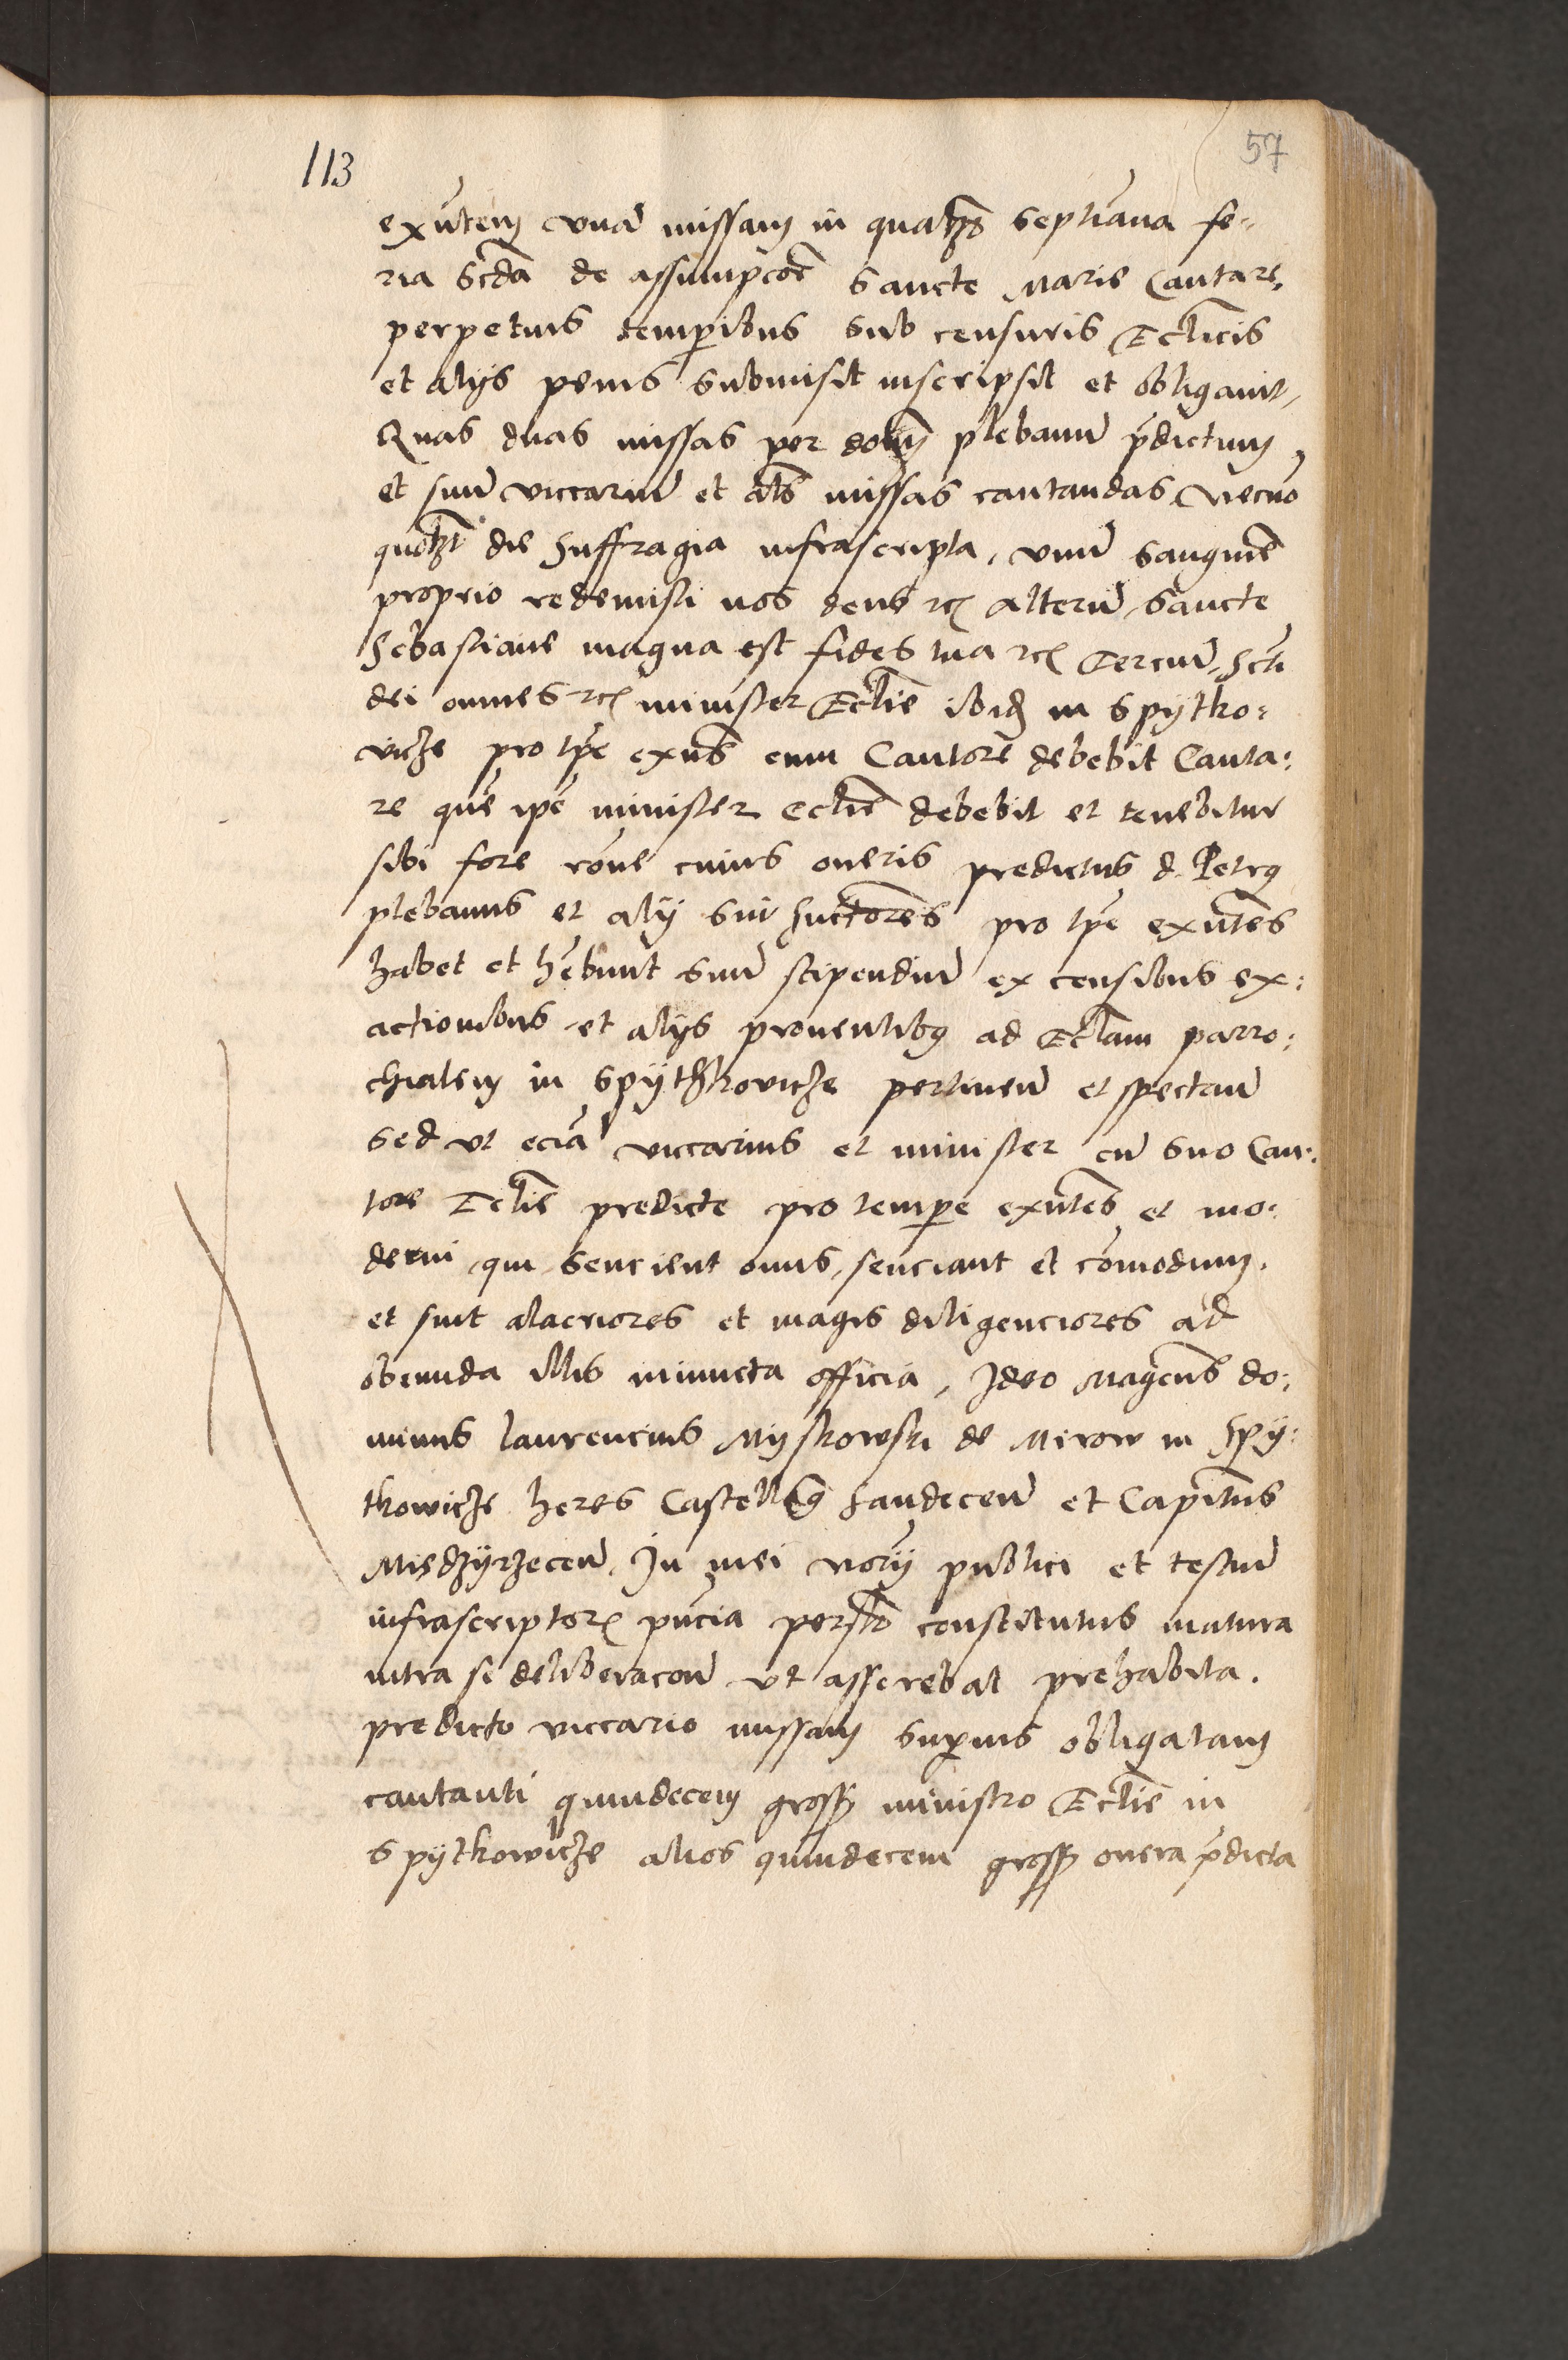 113
57
exñtem vnã missam in qualz septĩana fe-
ria scđa de assumpcõe Sancte Marie Cantare,
perpetuis temp̃ibus sub censuris Eccl̃icis
et alijs penis submisit inscripsit et obligauit,
Quas duas missas per dom̃ plebanũ p̃dictum
et suũ viccariũ et als missas cantandas Necnõ
quolz die Suffragia infrascripta, vnũ Sanguĩe
proprio redemisti nos deus rc̃ alterũ, Sancte
Sebastiane magna est fides tua rc̃ Terciũ, Scti
dei omnes rc̃ minister Eccl̃ie ibid in Spytko-
vicze pro tp̃e exñs cum Cantore debebit Canta-
re quẽ ip̃e minister eccl̃ie debebit et tenebitur
sibi fore rõne cuius oneris predictus d. Petrq
plebanus et alij sui Suctores pro tp̃e exñtes
habet et hẽbunt suũ stipendiũ ex censibus ex-
actionibus et alijs prouentibq ad Eccl̃iam parro-
chialem in Spythkovicze pertineñ et spectañ
Sed vt eciã viccarius et minister cũ suo Can-
tore Eccl̃ie predicte pro temp̃e exñtes et mo-
derni qui sencient onus, senciant et cõmodum.
et sint alacriores et magis diligenciores ad
obeunda illis iniuncta officia, Ideo Magcus do-
minus laurencius Myskowski de Mirow in Spy-
tkowicze heres Castellq Sandeceñ et Capitñs
Miedzyrzeceñ, In mei norij publici et testiũ
infrascriptor pñcia persõlr constitutus matura
intra se deliberacoñ vt asserebat prehabita.
predicto viccario missam supius obligatam
cantanti quindecem gross ministro Eccl̃ie in
Spytkowicze alios quindecem gross onera p̃dicta